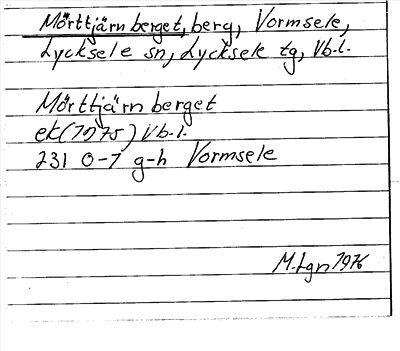 Mörttjärnberget, berg, Vormsele,
Lycksele sn, Lycksele tg, Vb.l.
Mörttjärnberget
ek(1975) Vb.l.
231 0-1 g-h Vormsele
M.Lgn 1976